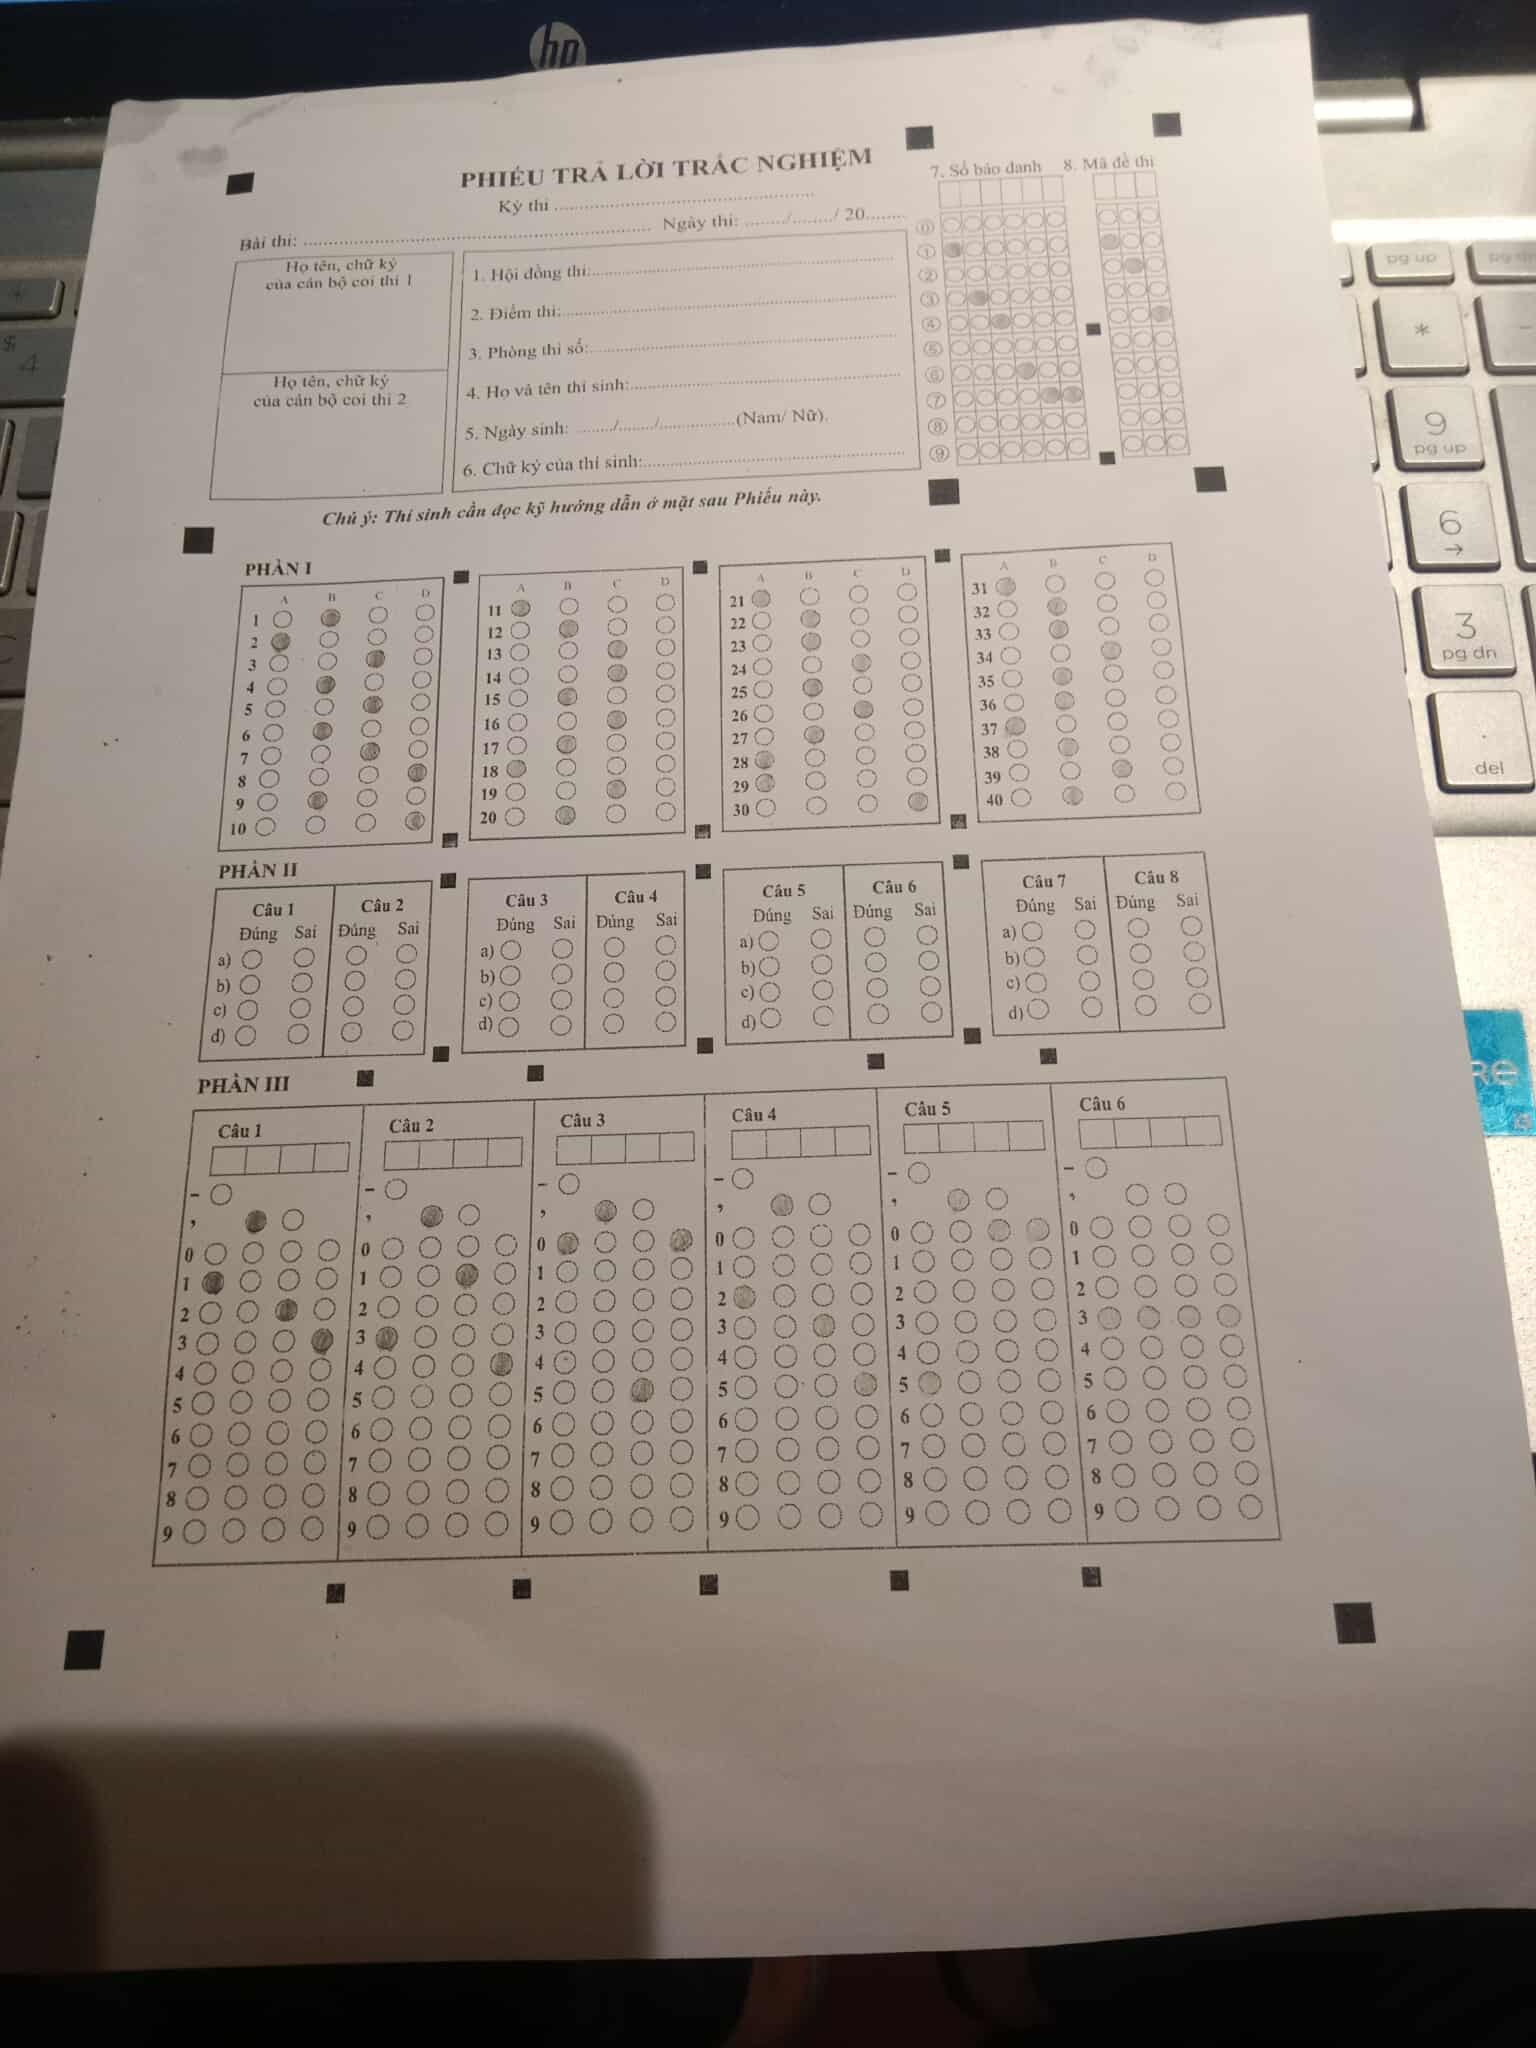 hp
PHIẾU TRẢ LỜI TRẮC NGHIỆM
Kỳ thi
Bài thi: Ngày thi: ......../......../ 20........
7. Số báo danh 8. Mã đề thi
Họ tên, chữ ký
của cán bộ coi thi 1
Họ tên, chữ ký
của cán bộ coi thi 2
1. Hội đồng thi:
2. Điểm thi:
3. Phòng thi số:
4. Họ và tên thí sinh:
5. Ngày sinh: ......../......../................(Nam/ Nữ).
6. Chữ ký của thí sinh:
0
1
2
3
4
5
6
7
8
9
Chú ý: Thí sinh cần đọc kỹ hướng dẫn ở mặt sau Phiếu này.
PHẦN I
A B C D
1
2
3
4
5
6
7
8
9
10
A B C D
11
12
13
14
15
16
17
18
19
20
A B C D
21
22
23
24
25
26
27
28
29
30
A B C D
31
32
33
34
35
36
37
38
39
40
PHẦN II
Câu 1 Câu 2
Đúng Sai Đúng Sai
a)
b)
c)
d)
Câu 3 Câu 4
Đúng Sai Đúng Sai
a)
b)
c)
d)
Câu 5 Câu 6
Đúng Sai Đúng Sai
a)
b)
c)
d)
Câu 7 Câu 8
Đúng Sai Đúng Sai
a)
b)
c)
d)
PHẦN III
Câu 1
-
,
0
1
2
3
4
5
6
7
8
9
Câu 2
-
,
0
1
2
3
4
5
6
7
8
9
Câu 3
-
,
0
1
2
3
4
5
6
7
8
9
Câu 4
-
,
0
1
2
3
4
5
6
7
8
9
Câu 5
-
,
0
1
2
3
4
5
6
7
8
9
Câu 6
-
,
0
1
2
3
4
5
6
7
8
9
$
4
*
pg up
*
-
9
pg up
6
→
3
pg dn
.
del